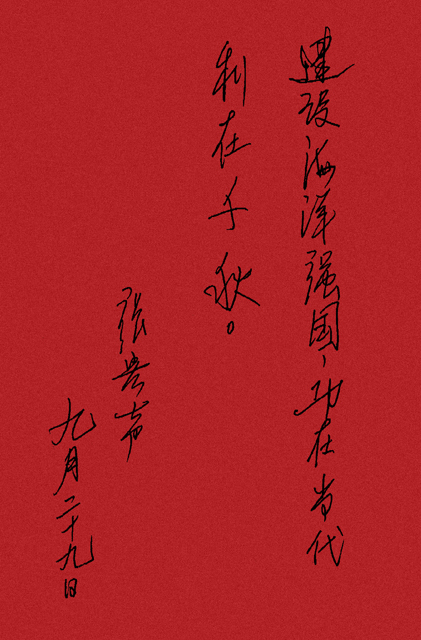 建设海洋强国，功在当代
利在千秋。
张
九月二十九日